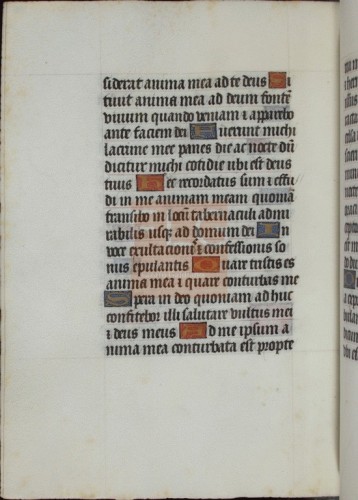 siderat anima mea ad te deus Si
tiuit anima mea ad deum fontē
viuum quando veniam & apparebo
ante faciem dei Fuerunt michi
lacrime mee panes die ac nocte dū
dicitur michi cotidie ubi est deus
tuus Hec recordatus sum & effu
di in me animam meam quoniā
transibo in locū tabernaculi admi
rabilis usqȝ ad domum dei In
voce exultacionis & confessionis so
nus epulantis Quare tristis es
anima mea & quare conturbas me
Spera in deo quoniam ad huc
confitebor illi salutare vultus mei
& deus meus Ad me ipsum a
nima mea conturbata est propte